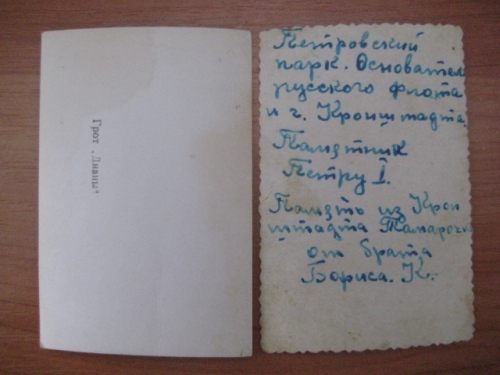 Грот „Дианы“
Петровский
парк. Основатель
русского флота
и г. Кронштадта.
Памятник
Петру I.
Память из Крон
штадта Тамарочке
от брата
Бориса. К.